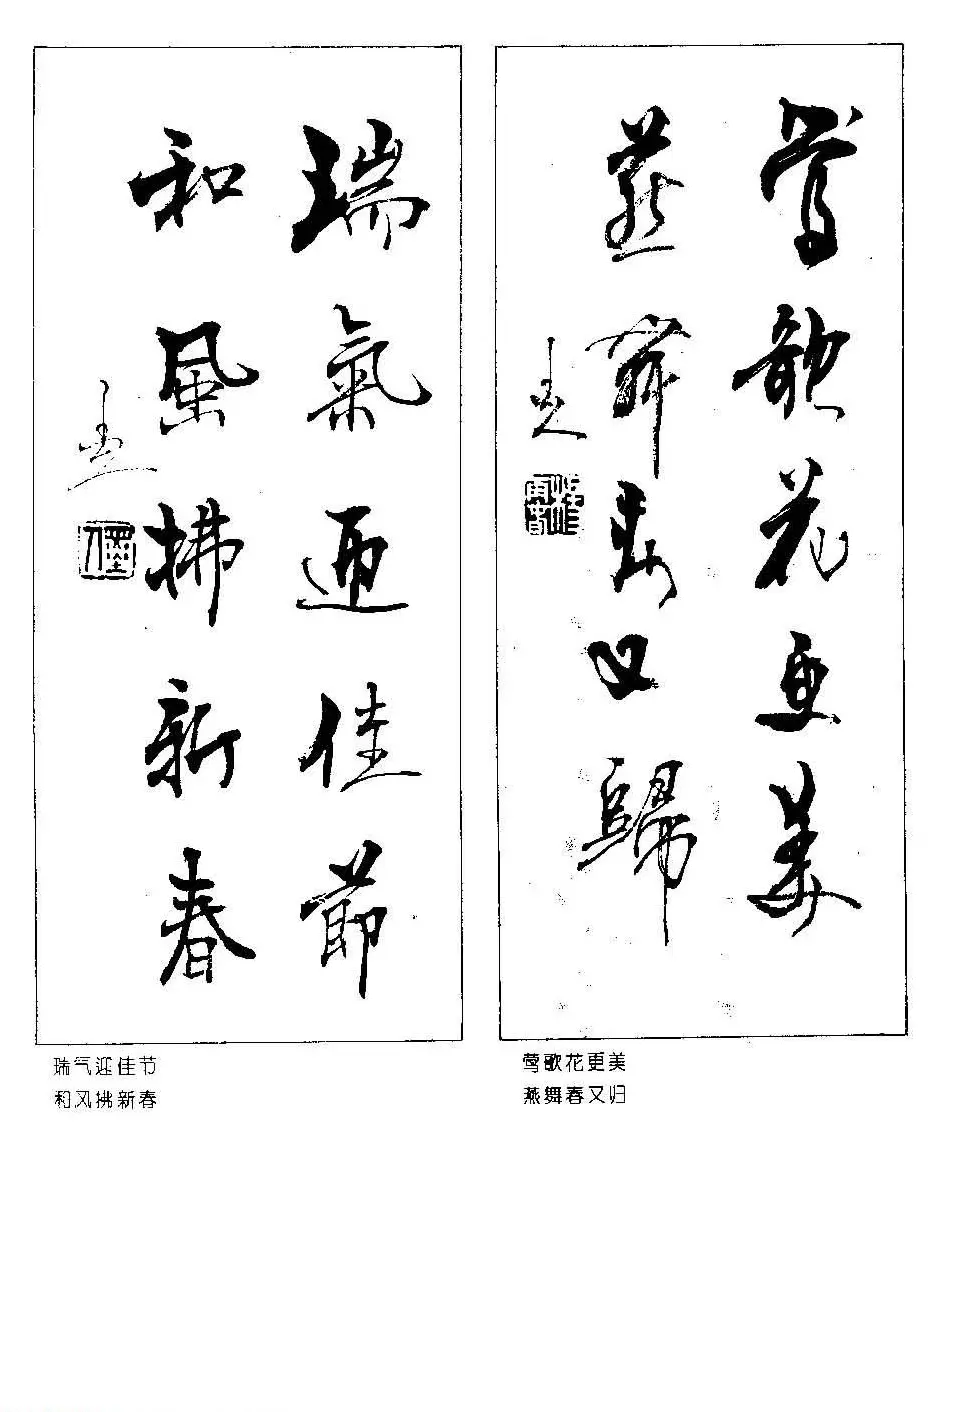 鶯歌花更美
燕舞春又歸
瑞氣迎佳節
和風拂新春
莺歌花更美
燕舞春又归
瑞气迎佳节
和风拂新春